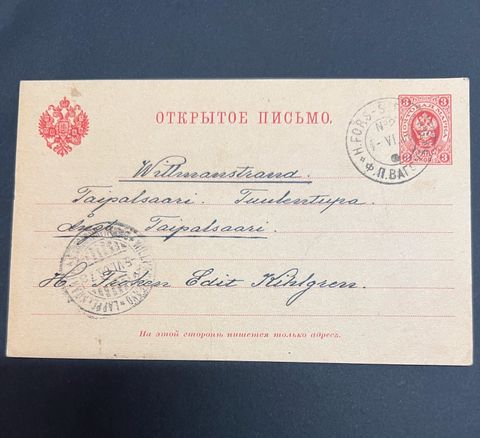 ОТКРЫТОЕ ПИСЬМО.
3 3
3 3
H:FORS-S
№ 2
VI
Ф.П.ВАГ
Willmanstrand.
Taipalsaari. Tuulentupa.
Taipalsaari.
H. Edit Kihlgren.
На этой сторонѣ пишется только адресъ.